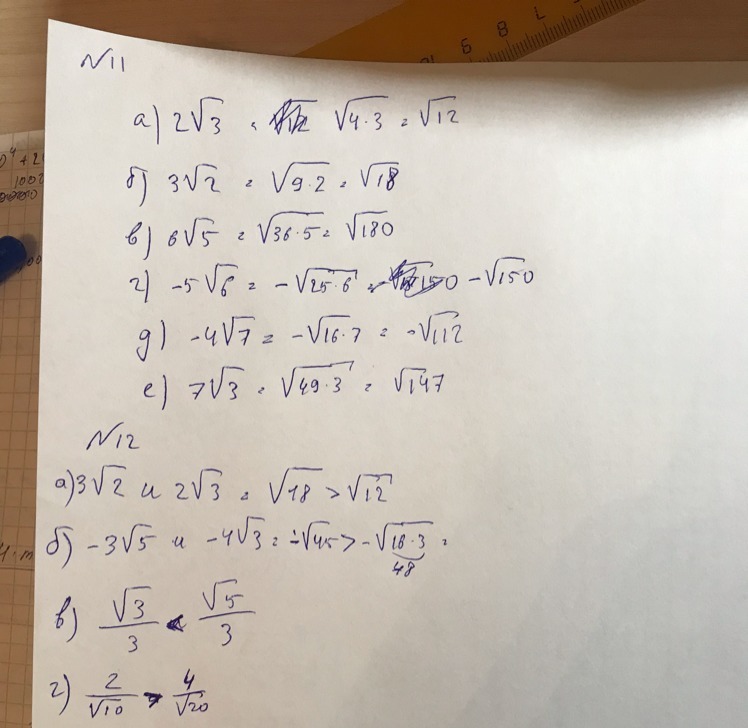 N11
а) 2√3 = √4·3 = √12
б) 3√2 = √9·2 = √18
в) 6√5 = √36·5 = √180
г) -5√6 = -√25·6 = -√150
д) -4√7 = -√16·7 = -√112
е) 7√3 = √49·3 = √147
N12
а) 3√2 и 2√3 = √18 > √12
б) -3√5 и -4√3 = -√45 > -√16·3 =
48
в) √3/3 < √5/3
г) 2/√10 > 4/√20